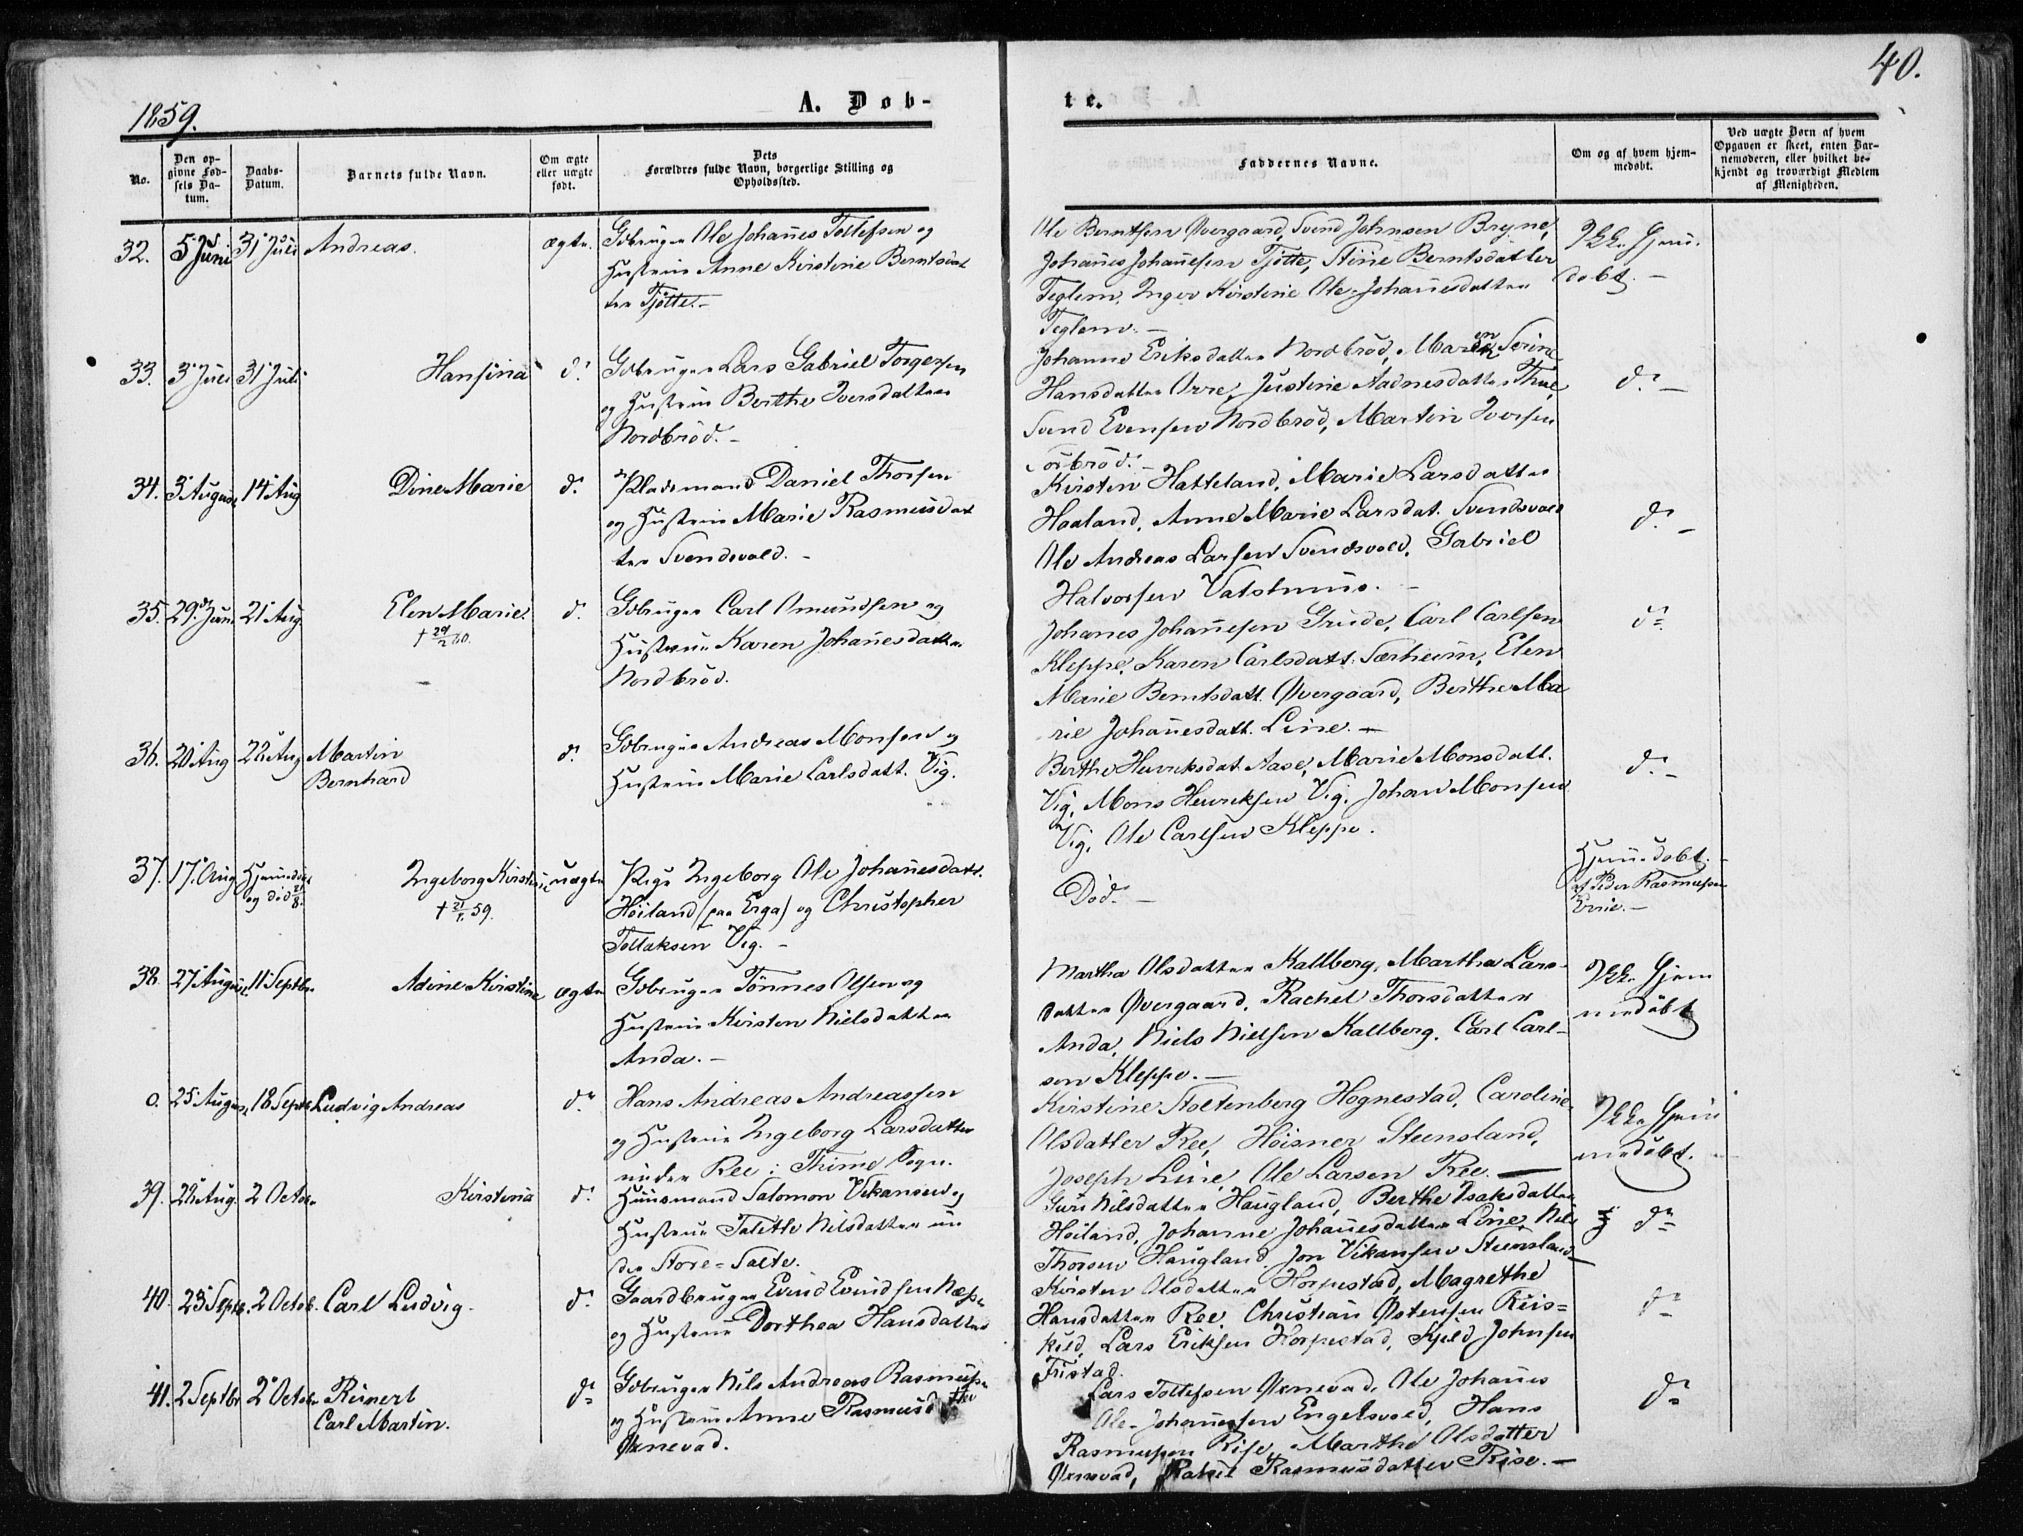 40.
1859.
A. Døb-
te.
No.
Den op-
givne Fød-
sels Da-
tum.
Daabs-
Datum.
Barnets fulde Navn.
Om ægte
eller uægte
født.
Dets
Forældres fulde Navn, borgerlige Stilling og
Opholdssted.
Faddernes Navne.
Om og af hvem hjem-
medøbt.
Ved uægte Børn af hvem
Opgaven er skeet, enten Bar-
nemoderen, eller hvilket be-
kjendt og troværdigt Medlem
af Menigheden.
32. 5 Juni 31 Juli Andreas. ægte. Gdbruger Ole Johanes Tollefsen og
Hustrue Anne Kirstine Berntsdat
ter Tjøtte.
Ole Berntsen Øvergaard, Svend Johnsen Bryne,
Johanes Johanesen Tjøtte, Stine Berntsdatter
Teglem, Inger Kirstine Ole-Johanesdatter
Teglem.
Ikke Hjem-
døbt.
33. 3 Juli 31 Juli Hansina d.o Gdbruger Lars Gabriel Torgersen
og Hustrue Berthe Iversdatter
Nordbrød.
Johanne Eriksdatter Nordbrød, Maren Serine
Hansdatter Orre, Justine Aadnesdatter Thue,
Svend Evensen Nordbrød, Martin Iversen
Sørbrød.
d.o
34. 3 August 14 Aug Dine Marie d.o Pladsmand Daniel Thorsen
og Hustrue Marie Rasmusdat
ter Svendsvold.
Kirsten Hatteland, Marie Larsdatter
Haaland, Anne Marie Larsdat. Svendsvold
Ole Andreas Larsen Svendsvold, Gabriel
Halvorsen Vatshuus.
d.o
35. 29 Juni 21 Aug. Elen Marie. d.o Gdbruger Carl Omundsen og
† 29/2 60.
Hustrue Karen Johanesdatter
Nordbrød.
Johanes Johanesen Grude, Carl Carlsen
Kleppe, Karen Carlsdatt. Særheim, Elen
Marie Berntsdatt. Øvergaard, Berthe Ma
rie Johanesdatt. Line.
d.o
36. 20 Aug 22 Aug Martin
Bernhard
d.o Gdbruger Andreas Monsen og
Hustrue Marie Carlsdatt. Vig.
Berthe Henriksdat. Aase, Marie Monsdatt.
Vig, Mons Henriksen Vig, Johan Monsen
Vig, Ole Carlsen Kleppe.
d.o
37. 17. Aug Hjemdøbt
og død 21/8.
Ingeborg Kirstine uægte Pige Ingeborg Ole Johanesdatt.
Høiland (paa Erga) og Christopher
Tollaksen Vig.
Død.
Hjemdøbt.
af Peder Rasmussen
38. 27 August 11 Septbr Adine Kirstine ægte Gdbruger Tønnes Olsen og
Hustrue Kirsten Nielsdatter
Anda.
Martha Olsdatter Kallberg, Martha Lars-
datter Øvergaard, Rachel Thorsdatter
Anda, Niels Nielsen Kallberg, Carl Carl-
sen Kleppe.
Ikke Hjem
medøbt
0. 25 August 18 Septb Ludvig Andreas d.o Hans Andreas Andreassen
og Hustrue Ingeborg Larsdatter
under Ree i Thime Sogn.
Kirstine Stoltenberg Hognestad, Caroline
Olsdatter Ree, Høisner Steensland,
Joseph Line, Ole Larsen Ree.
Ikke Hjem
medøbt.
39. 22 Aug. 2 Octobr Kirstena d.o Huusmand Salomon Vikansen og
Hustrue Talette Nilsdatter un
der Store-Salte.
Guri Nilsdatter Haugland, Berthe Isaksdatter
Høiland, Johanne Johanesdatter Line, Nils
Thorsen Haugland, Jon Vikansen Steensland
d.o
40. 23 Septb. 2 Octob. Carl Ludvig. d.o Gaardbruger Evind Evindsen Næse
og Hustrue Dorthea Hansdatter
Kirsten Olsdatter Horpestad, Magrethe
Hansdatter Ree, Christian Østensen Riis-
kild, Lars Eriksen Horpestad, Kjeld Johnsen
Fristad.
d.o
41. 2 Septbr 2 Octobr Reinert
Carl Martin.
d.o Gdbruger Nils Andreas Rasmusse
og Hustrue Anne Rasmusd
Øxnevad.
Lars Tollefsen Øxnevad, Ole Johanes
Ole-Johanessen Engelsvold, Hans
Rasmussen Rise, Marthe Olsdatter
Øxnevad, Rakel Rasmusdatter Rise.
d.o